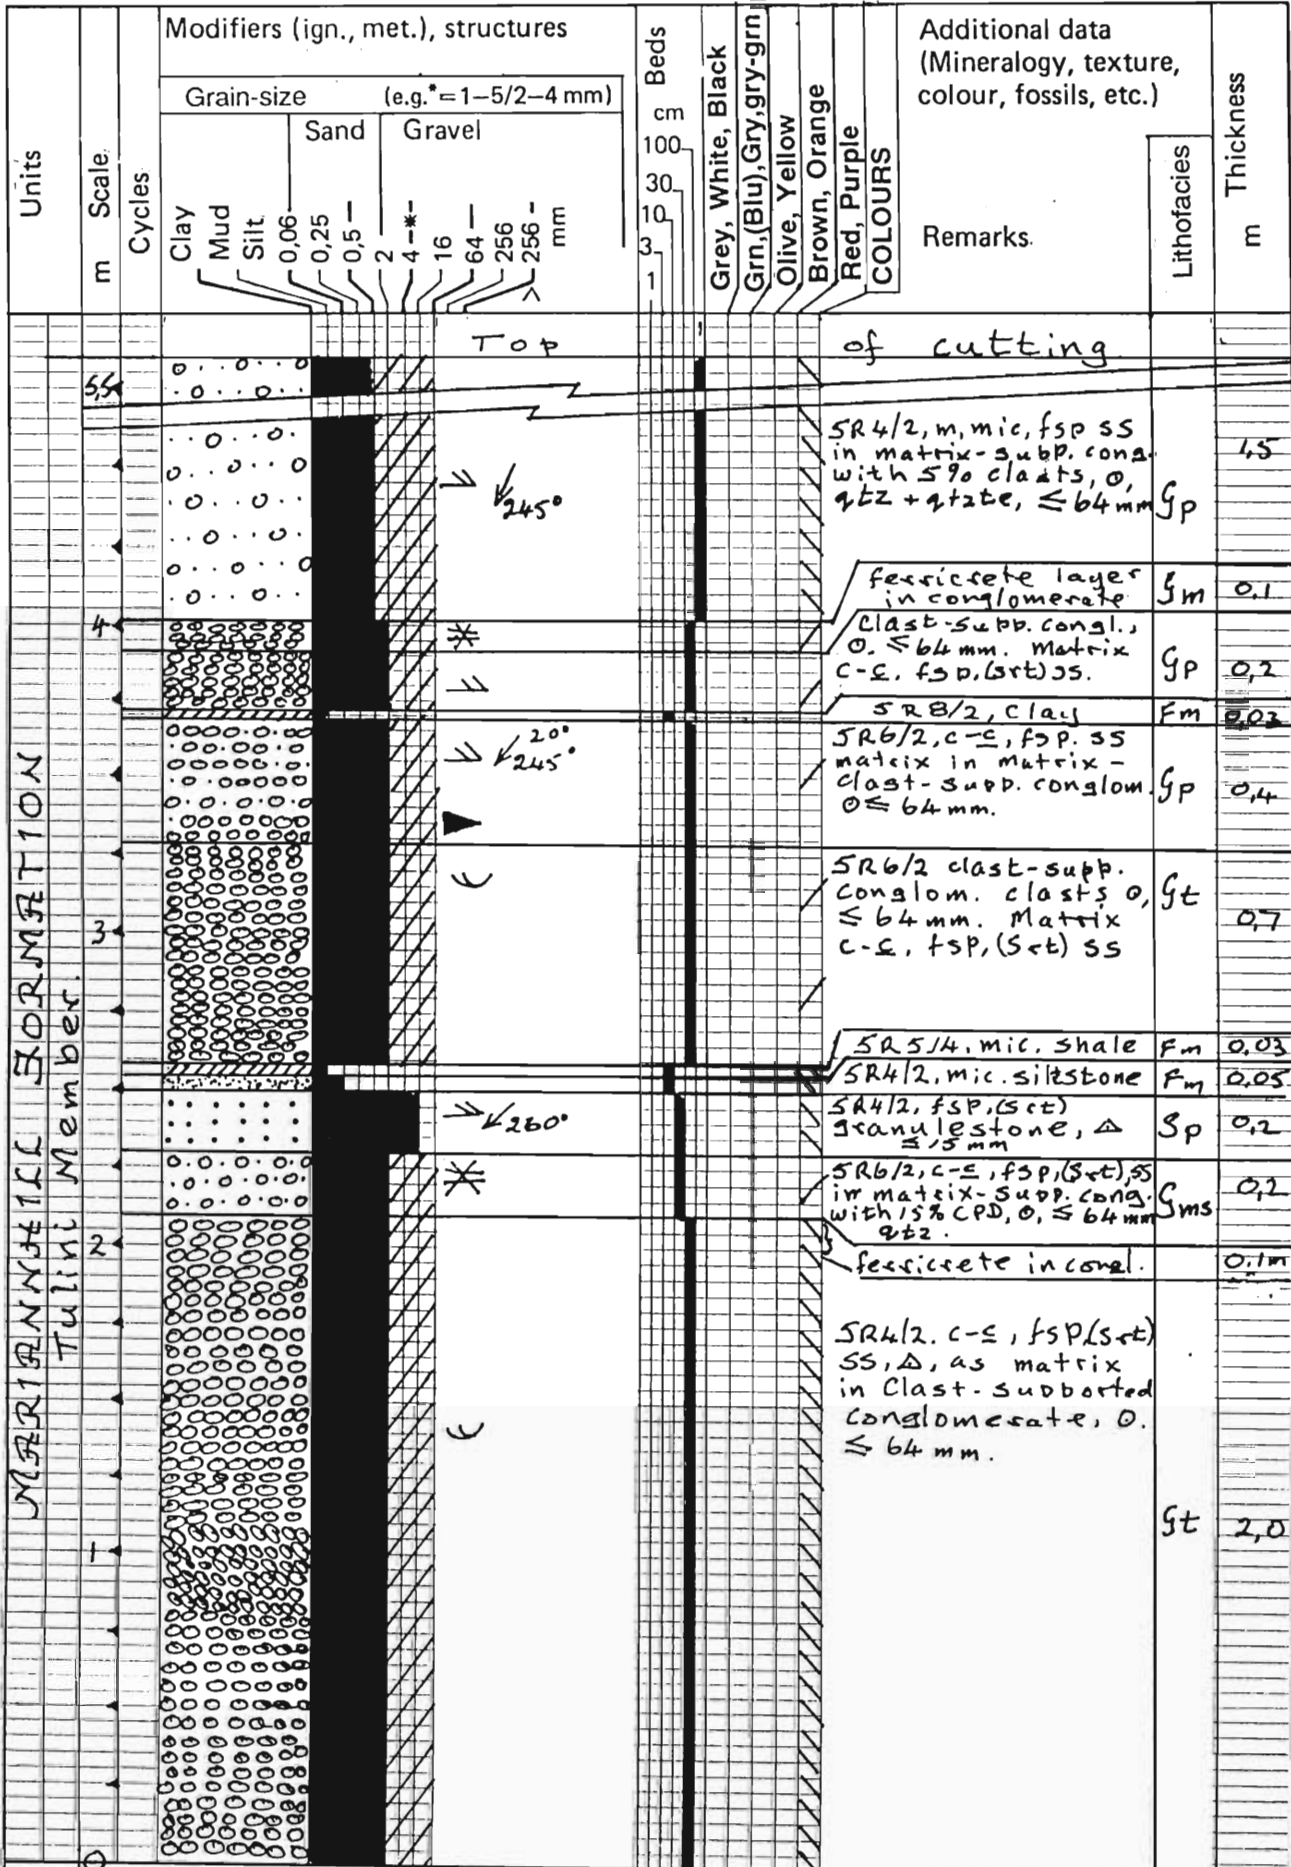 Units
m Scale
Cycles
Modifiers (ign., met.), structures
Grain-size (e.g.*=1—5/2—4 mm)
Sand Gravel
Clay
Mud
Silt.
0,06
0,25
0,5
2
4 -*-
16
64
256
>256
mm
Beds
cm
100
30
10
3
1
Grey, White, Black
Grn,(Blu),Gry,gry-grn
Olive, Yellow
Brown, Orange
Red, Purple
COLOURS
Additional data
(Mineralogy, texture,
colour, fossils, etc.)
Remarks.
Lithofacies
Thickness
m
Top of cutting
MARIANNHILL FORMATION
Tulini Member.
5,5
4
3
2
1
0
245°
20°
245°
260°
5R4/2, m, mic, fsp ss
in matrix-supp. cong.
with 5% clasts, O,
qtz + qtzte, ≤ 64 mm
Gp
1,5
ferricrete layer
in conglomerate
Gm
0,1
Clast-supp. congl.,
O. ≤ 64 mm. Matrix
c-c, fsp, (srt) ss.
Gp
0,2
5R8/2, Clay
Fm
0,03
5R6/2, c-c, fsp. ss
matrix in matrix-
clast-supp. conglom.
O ≤ 64 mm.
Gp
0,4
5R6/2 clast-supp.
Conglom. clasts O,
≤ 64 mm. Matrix
c-c, fsp, (srt) ss
Gt
0,7
5R5/4, mic. shale
Fm
0,03
5R4/2, mic. siltstone
Fm
0,05
5R4/2, fsp, (srt)
granulestone, △
≤ 15 mm
Sp
0,2
5R6/2, c-c, fsp, (srt), ss
in matrix-supp. cong.
with 15% CPD, O, ≤ 64 mm
qtz.
Gms
0,2
ferricrete in congl.
0,1m
5R4/2. c-c, fsp, (srt)
ss, △, as matrix
in Clast-supported
Conglomerate, O.
≤ 64 mm.
Gt
2,0